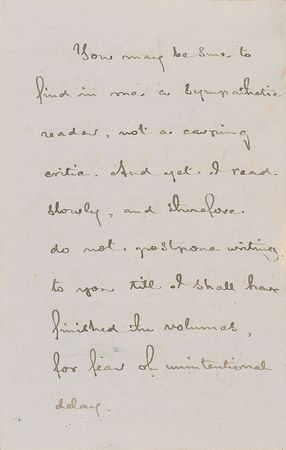 You may be sure to
find in me a sympathetic
reader, not a carping
critic. And yet I read
slowly, and therefore
do not postpone writing
to you till I shall have
finished the volumes,
for fear of unintentional
delay.